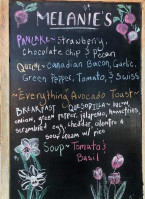 MELANIE'S
PANCAKE ~ Strawberry,
Chocolate chip & Pecan
QUICHE ~ Canadian Bacon, Garlic,
Green Pepper, Tomato, & Swiss
~Everything Avocado Toast~
BREAKFAST QUESADILLA ~ bacon,
onion, green pepper, jalapeño, homefries,
scrambled egg, cheddar, cilantro &
sour cream w/ rico
Soup ~ Tomato &
Basil